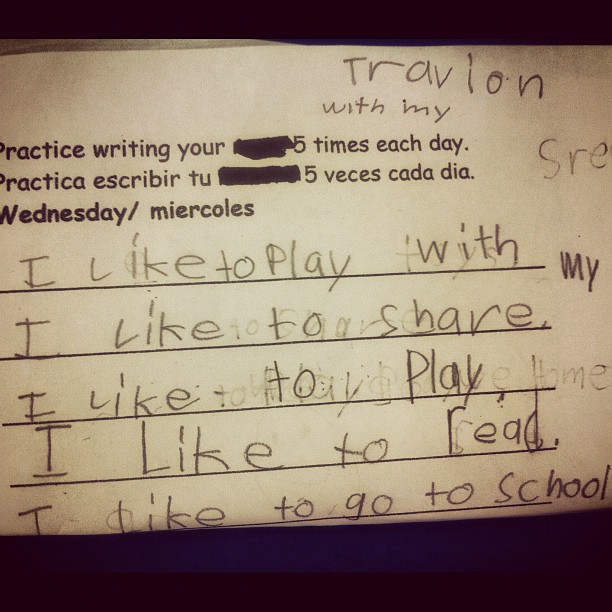 Travion
with my
Practice writing your 5 times each day.
Sre
Practica escribir tu 5 veces cada dia.
Wednesday/ miercoles
I like to Play with my
I like to share.
I like to Play.
home
I Like to read.
I like to go to school